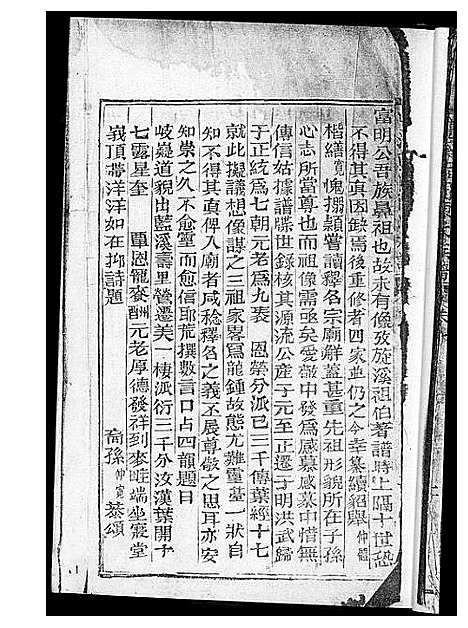 富明公吾族鼻祖也故未有像攷旋溪祖伯著譜時上隔十世恐
不得其真因錄焉後重修者四家並仍之今幸纂續紹舉仲體
楷繕寬愧搨穎嘗讀釋名宗廟辭蓋甚重先祖形貌所在子孫
心志所當尊也而祖像需亟矣爰敬中發為感慕感慕中惜無
傳信姑據譜牒世錄核其源流公產于元至正遷于明洪武歸
于正統為七朝元老為九袠 恩榮分派已三千傳葉經十七
就此擬議想像謀之三祖家畧為龍鍾故態尤難靈蓋一狀自
知不得其真俾入廟者咸稔釋名之義丕展尊敬之思耳亦安
知崇之久不愈靈而愈信耶荒撰數言口占四韻題曰
岐嶷道貌出藍溪壽里營遷美一棲派衍三千分汝漢葉開十
七露星奎 覃恩寵麥酬元老厚德發祥到麥畦端坐寢堂
峩頂帶洋洋如在抑詩題
裔孫仲寬恭頌